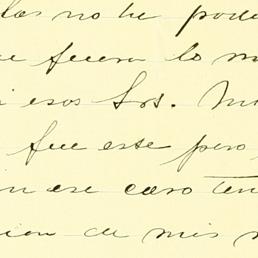 las no he pode
e fuera lo m
i esos Srs. Ma
fue este pero
in ese caso ten
cion de mis m